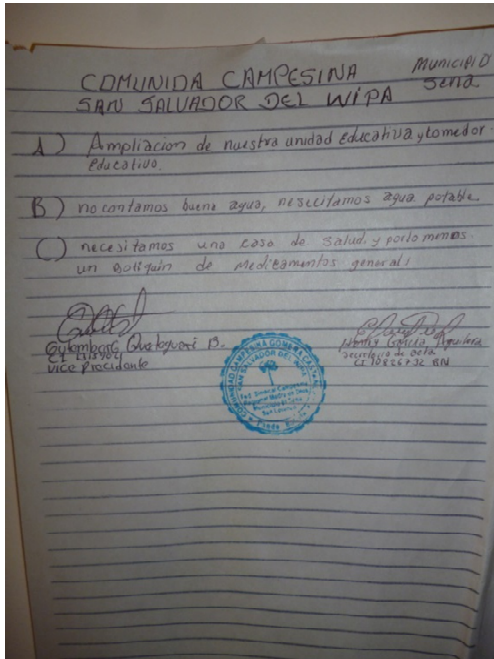 COMUNIDA CAMPESINA
MUNICIPIO
Sena
SAN SALVADOR DEL WIPA
A) Ampliacion de nuestra unidad educativa y comedor
educativo.
B) no contamos buene agua, nesecitamos agua potable.
C) necesitamos una casa de salud, y porlo menos.
un Botiquin de Medicamentos general,
vice Precidente
Garcia
secretario de acta
CI 10826732 BN
COMUNIDAD CAMPESINA
SAN SALVADOR DEL